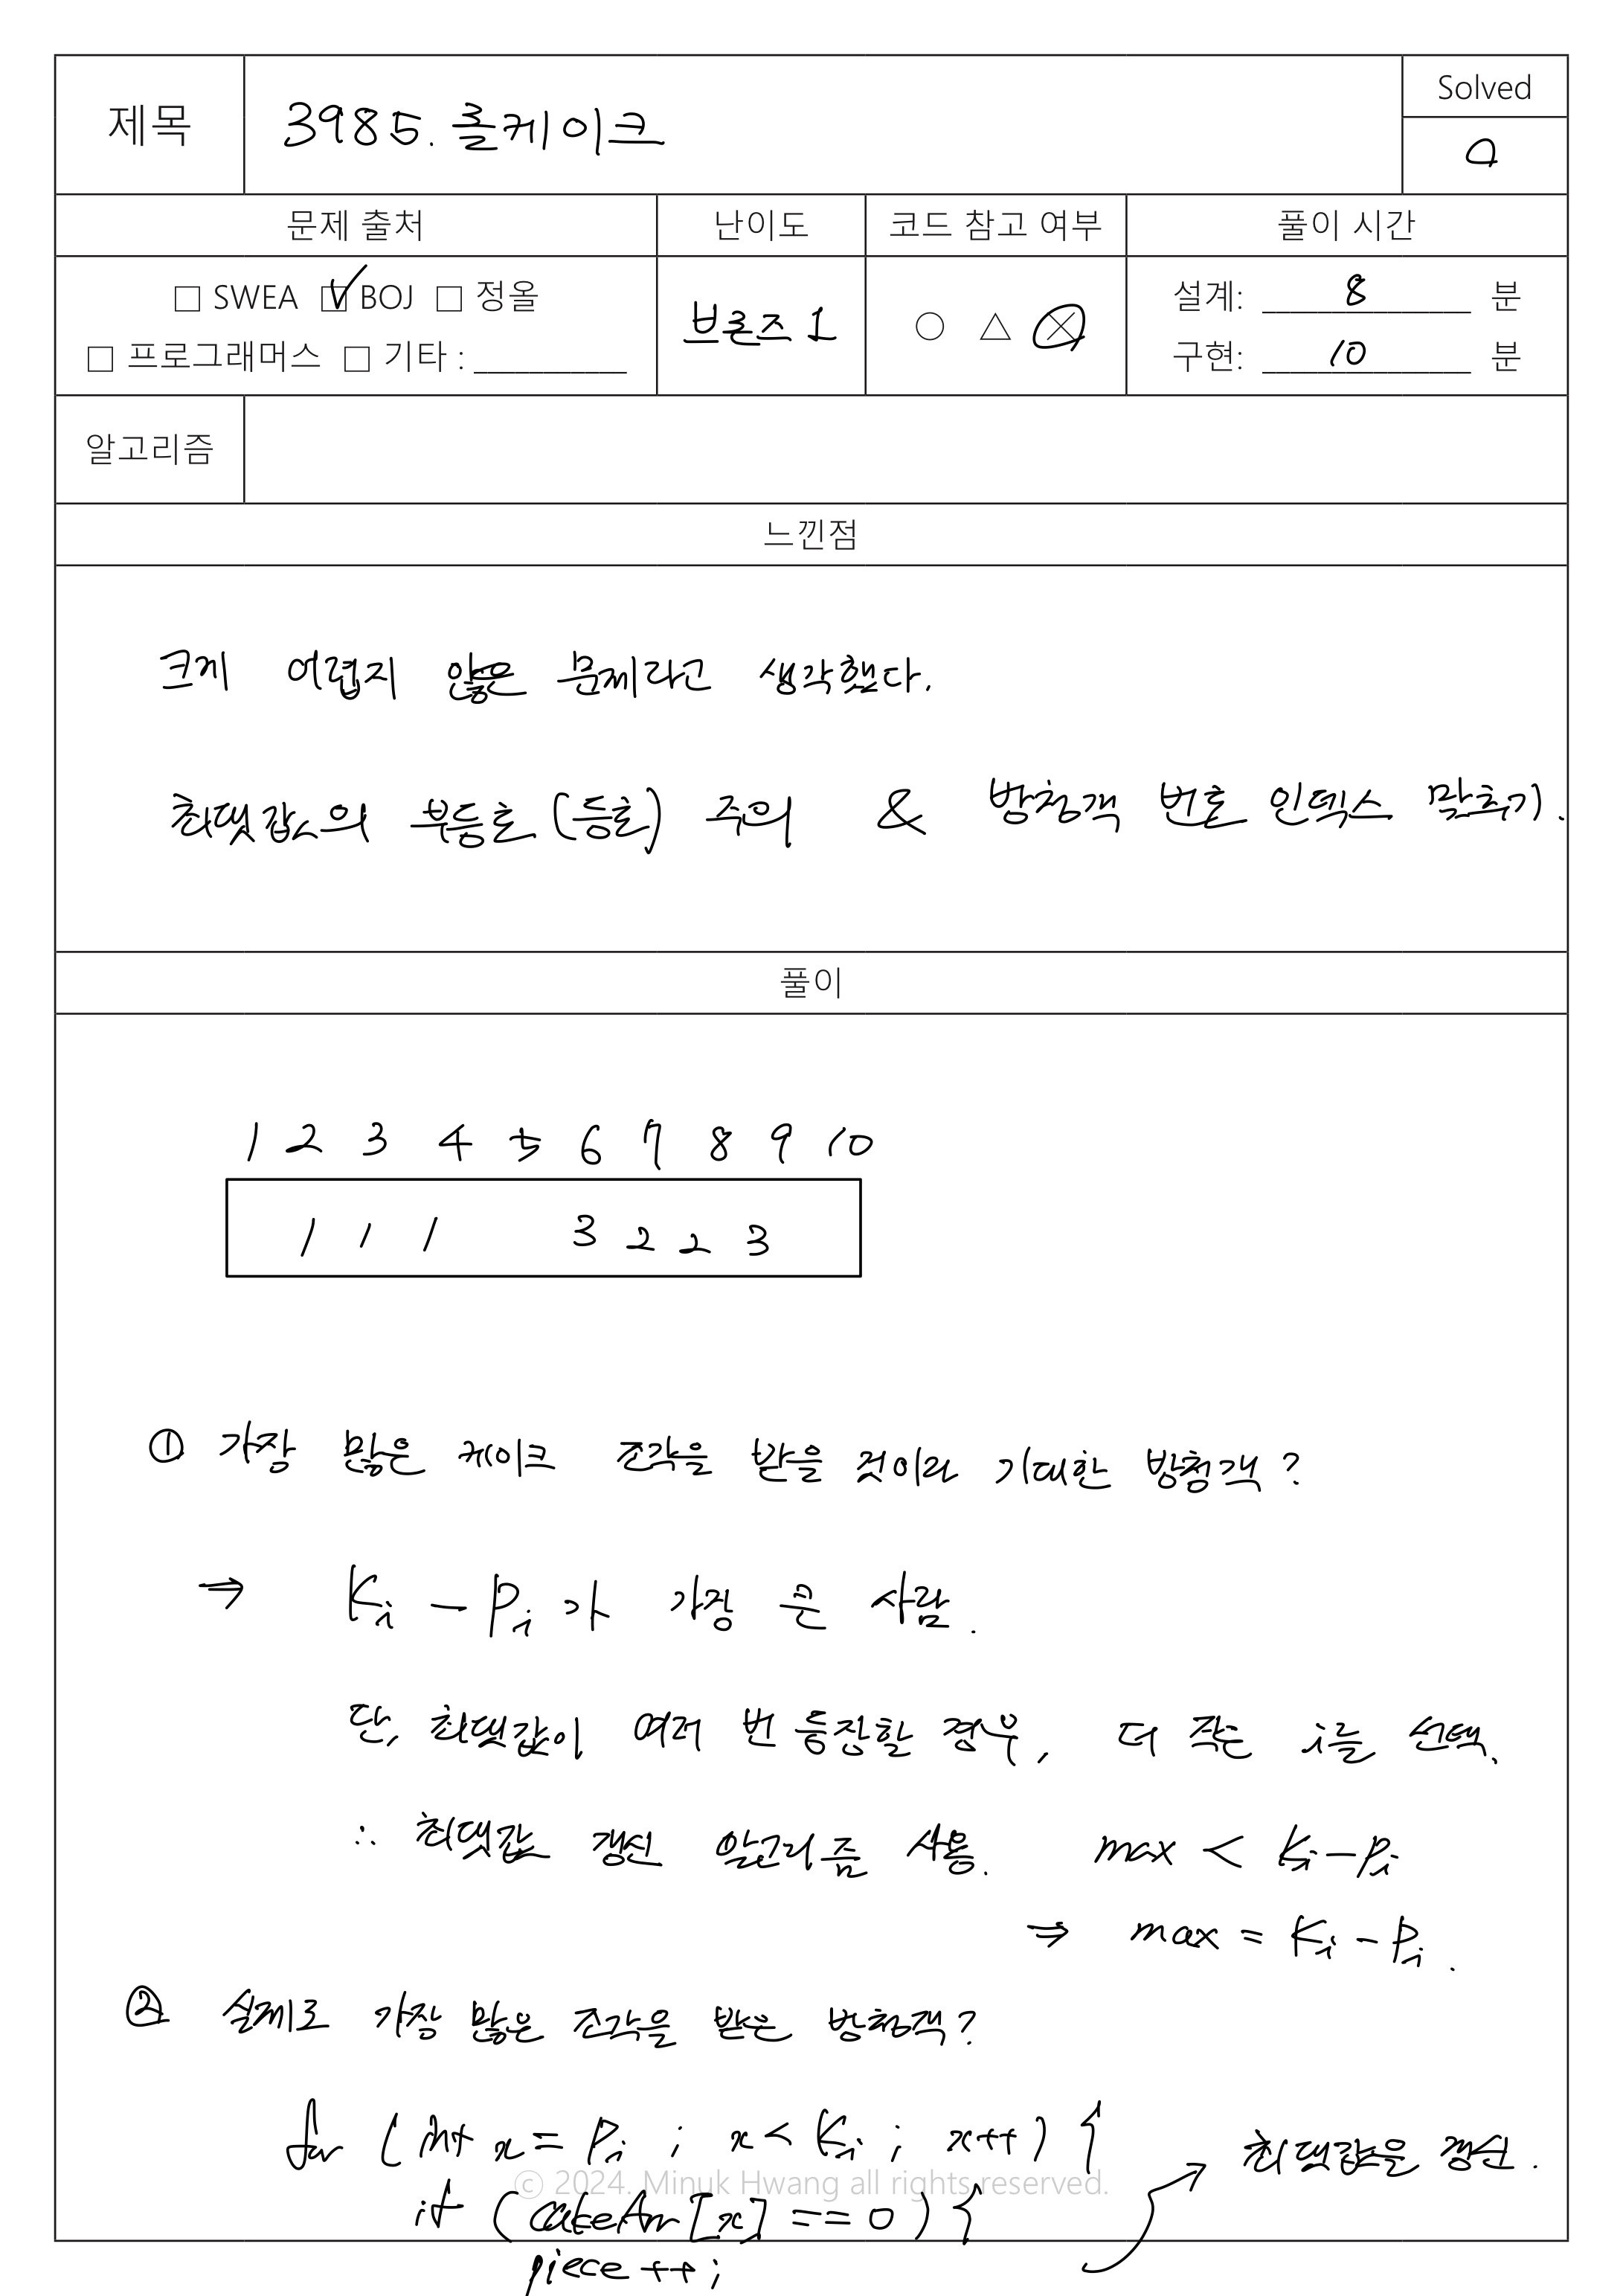 제목 3985. 롤케이크 Solved
O
문제 출처 난이도 코드 참고 여부 풀이 시간
□ SWEA ☑ BOJ □ 정올 브론즈 1 ○ △ ⊗ 설계: 8 분
□ 프로그래머스 □ 기타 : __________ 구현: 10 분
알고리즘
느낀점
크게 어렵지 않은 문제라고 생각했다.
최댓값의 부등호 (등호) 주의 & 방청객 번호 인덱스 맞추기.
풀이
1 2 3 4 5 6 7 8 9 10
1 1 1 3 2 2 3
① 가장 많은 케이크 조각을 받을 것이라 기대한 방청객?
⇒ Ki - Pi 가 가장 큰 사람.
단, 최댓값이 여러 번 등장할 경우, 더 작은 i를 선택.
∴ 최댓값 갱신 알고리즘 사용. max < Ki - Pi
⇒ max = Ki - Pi.
② 실제로 가장 많은 조각을 받은 방청객?
for (int x = Pi ; x < Ki ; x++) { 최댓값을 갱신.
© 2024. Minuk Hwang all rights reserved.
if (cakeArr[x] == 0) {
piece ++;